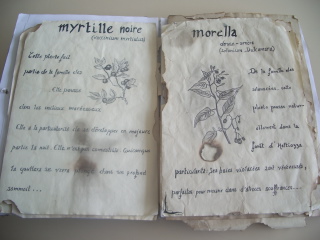 myrtille noire
(vaccinium myrtillus)
Cette plante fait
partie de la famille des
Elle pousse
dans les milieux marécageux.
Elle a la particularité de se
partie la nuit. Elle n'est pas comestible. Quiconque
la goutera se verra plongé dans un profond
sommeil...
morella
douce-amère
(solanum dulcamara)
De la famille des
solanacées, cette
plante pousse
dans la
forêt d'
particulièrement. Ses baies violacées sont vénéneuses,
parfaites pour mourir dans d'atroces souffrances...